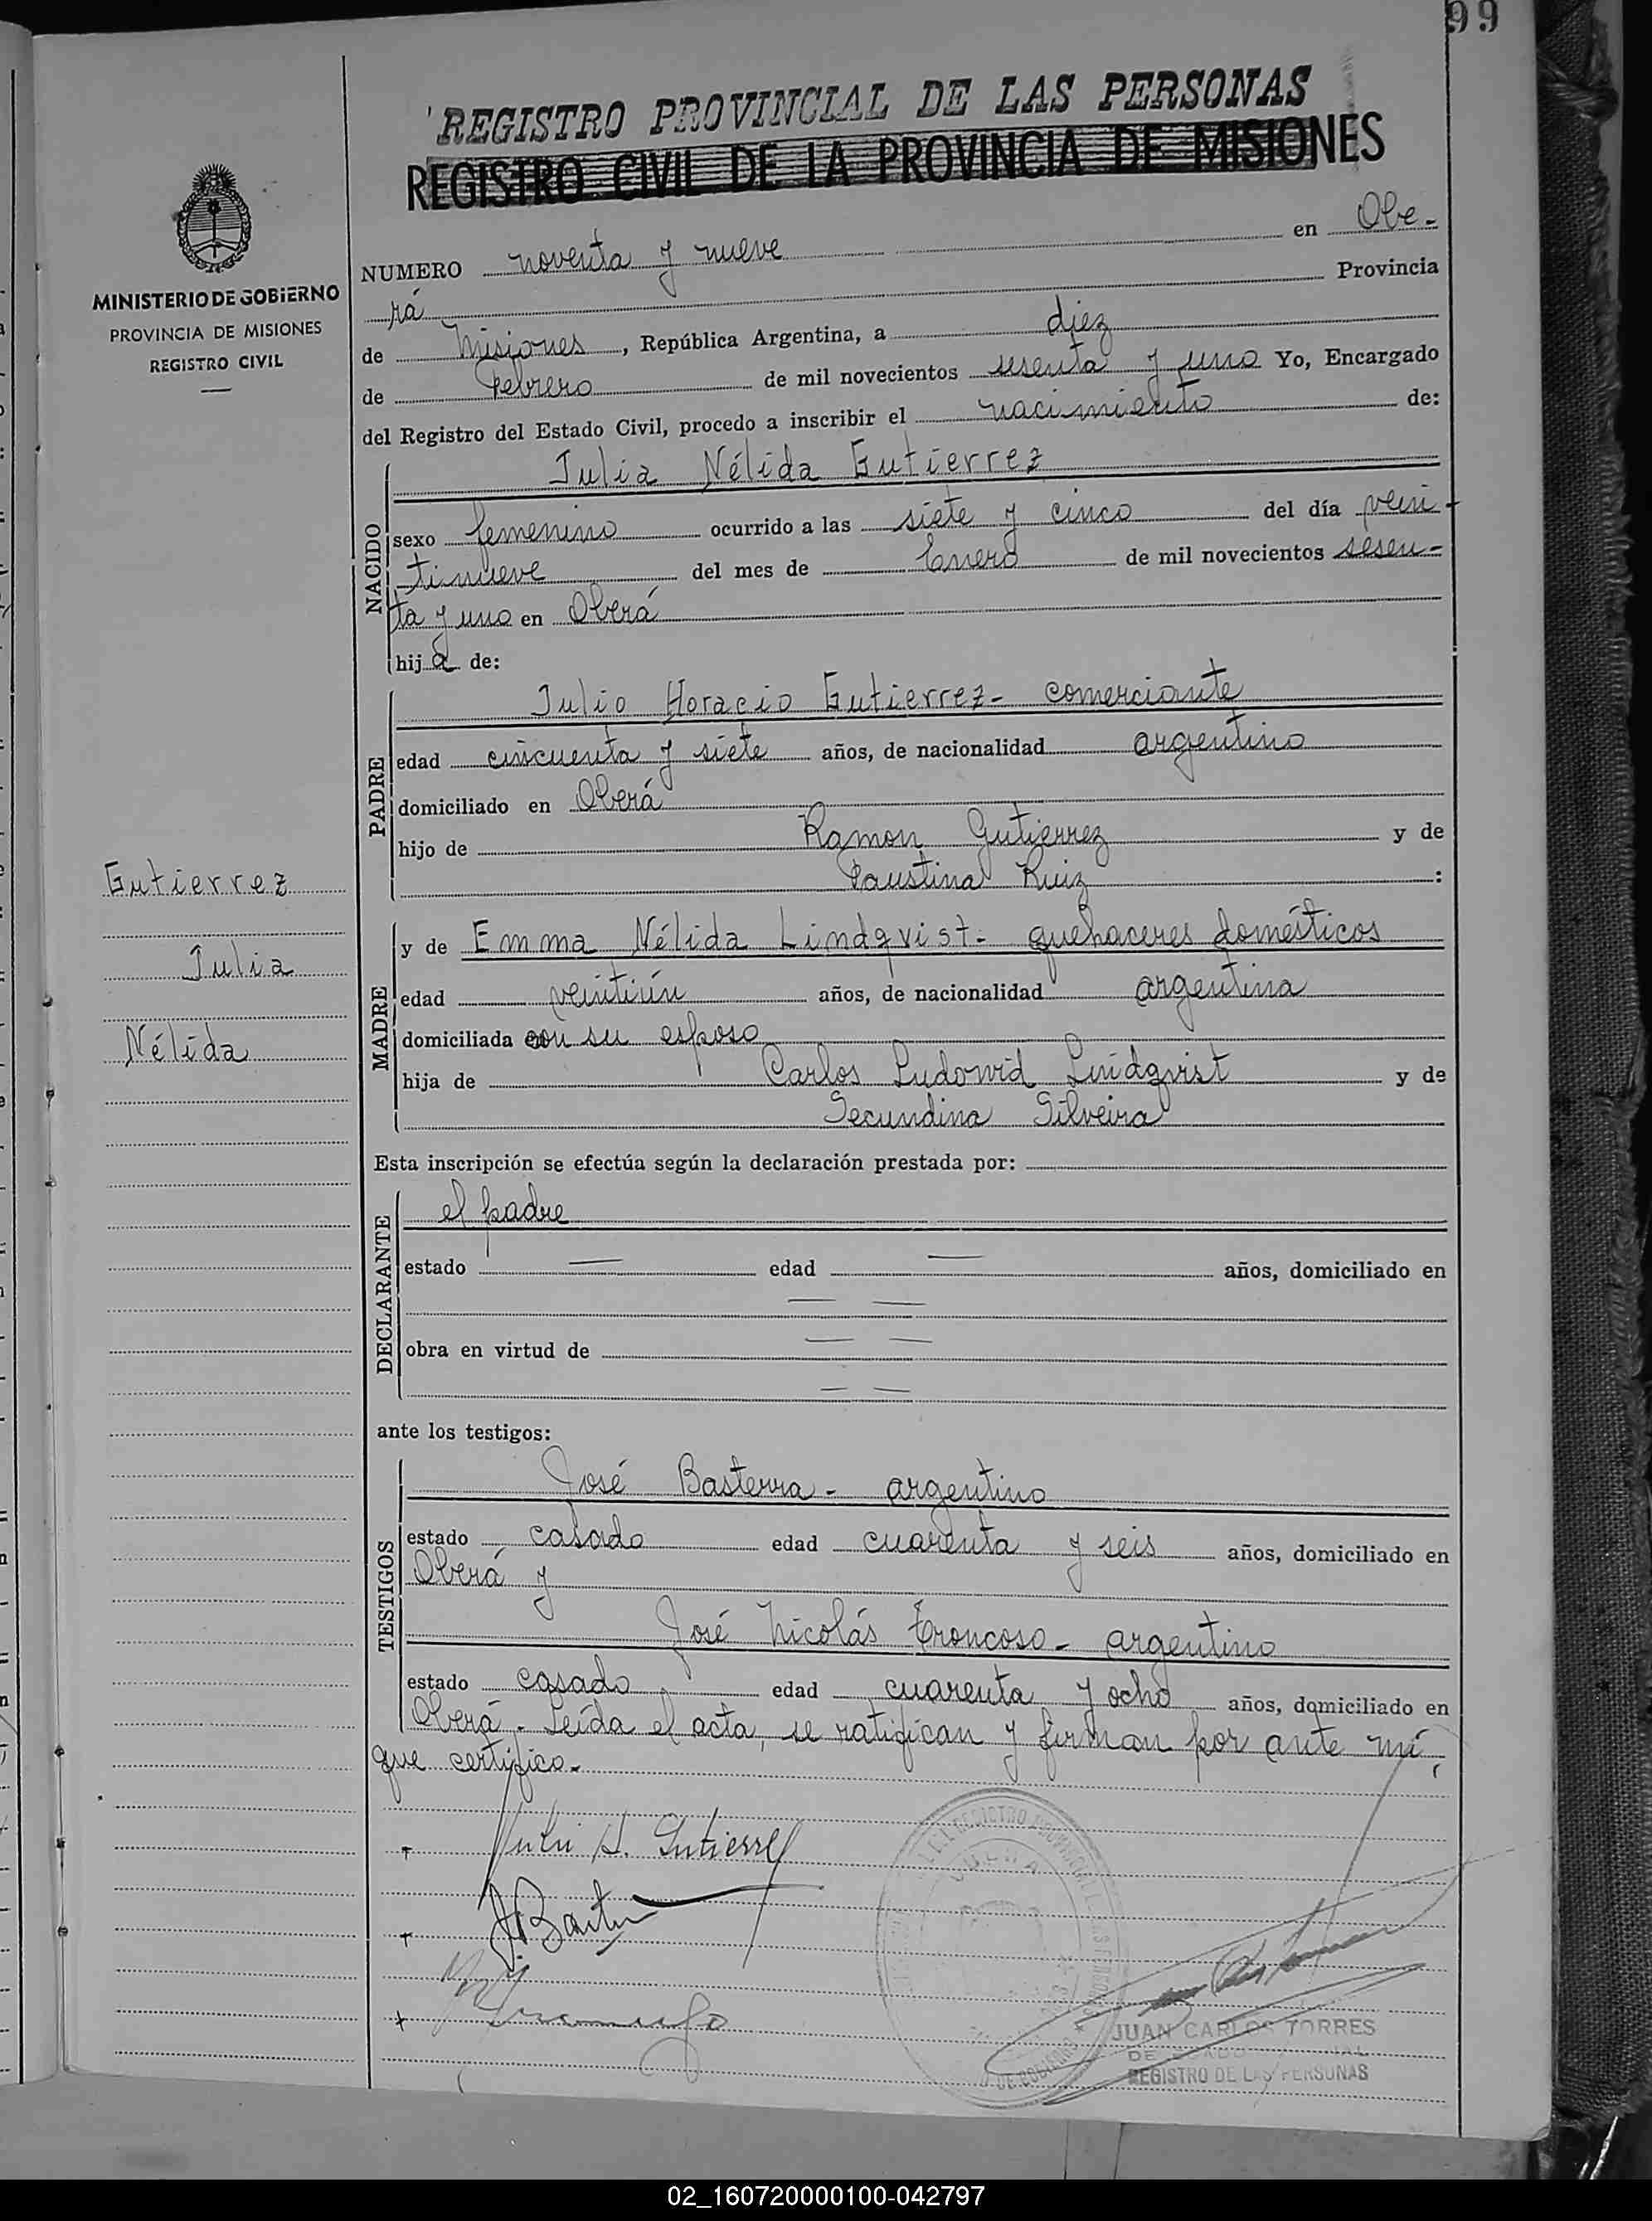 99
REGISTRO PROVINCIAL DE LAS PERSONAS
REGISTRO CIVIL DE LA PROVINCIA DE MISIONES
MINISTERIO DE GOBIERNO
PROVINCIA DE MISIONES
REGISTRO CIVIL
NUMERO noventa y nueve en Obe-
rá Provincia
de Misiones, República Argentina, a diez
de Febrero de mil novecientos sesenta y uno Yo, Encargado
del Registro del Estado Civil, procedo a inscribir el nacimiento de:
NACIDO
Julia Nélida Gutierrez
sexo femenino ocurrido a las siete y cinco del día vein-
tinueve del mes de Enero de mil novecientos sesen-
ta y uno en Oberá
hija de:
PADRE
Julio Horacio Gutierrez- comerciante
edad cincuenta y siete años, de nacionalidad argentino
domiciliado en Oberá
hijo de Ramon Gutierrez y de
Faustina Ruiz :
Gutierrez
Julia
Nélida
MADRE
y de Emma Nélida Lindqvist- quehaceres domésticos
edad veintiún años, de nacionalidad argentina
domiciliada con su esposo
hija de Carlos Ludowid Lindqvist y de
Secundina Silveira
Esta inscripción se efectúa según la declaración prestada por:
DECLARANTE
el padre
estado — edad — años, domiciliado en
— —
obra en virtud de — —
— —
ante los testigos:
TESTIGOS
José Basterra - argentino
estado casado edad cuarenta y seis años, domiciliado en
Oberá y
José Nicolás Troncoso - argentino
estado casado edad cuarenta y ocho años, domiciliado en
Oberá - Leída el acta, se ratifican y firman por ante mí,
que certifico.-
H. Gutierrez
JUAN CARLOS TORRES
REGISTRO DE LAS PERSONAS
02_160720000100-042797